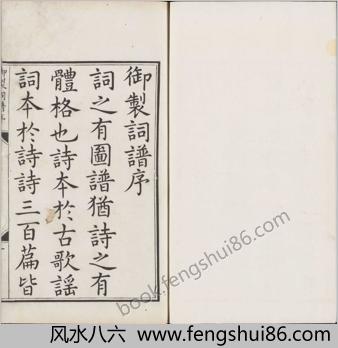 御製詞譜序
詞之有圖譜猶詩之有
體格也詩本於古歌謡
詞本於詩詩三百篇皆
book.fengshui86.com
风水八六 www.fengshui86.com